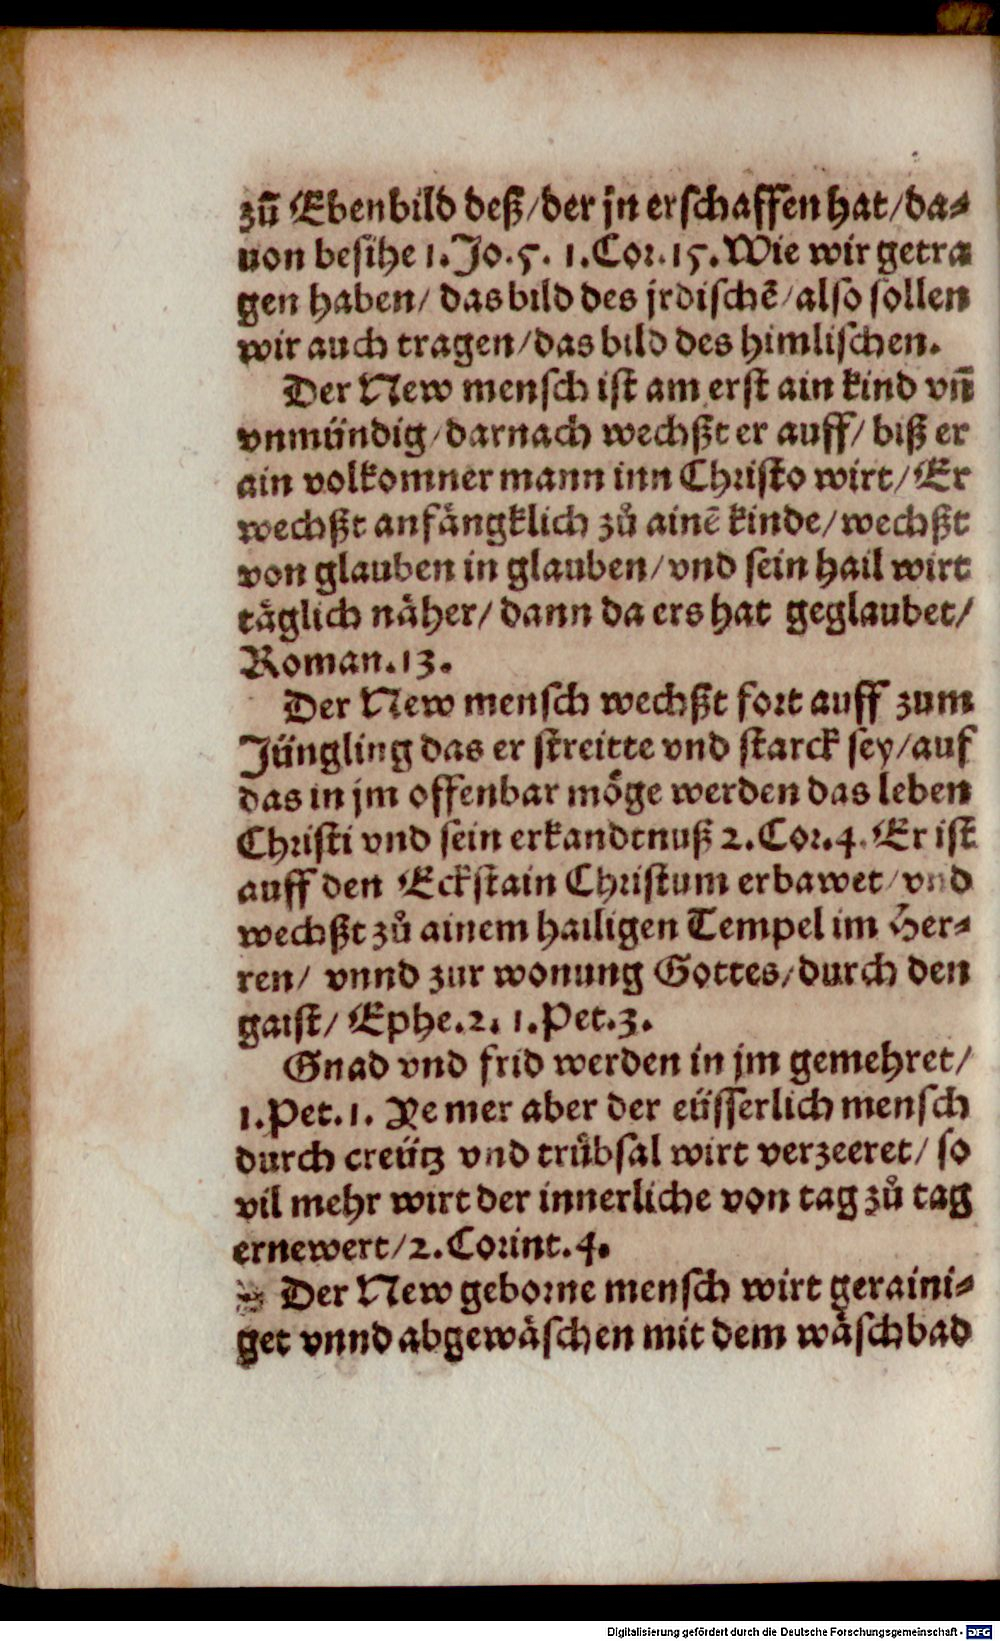 zū Ebenbild deß/der jn erschaffen hat/da-
uon besihe 1. Jo. 5. 1. Cor. 15. Wie wir getra
gen haben/ das bild des jrdischē/also sollen
wir auch tragen/das bild des himlischen.
Der New mensch ist am erst ain kind vn̄
vnmündig/darnach wechßt er auff/ biß er
ain volkomner mann inn Christo wirt/ Er
wechßt anfängklich zů ainē kinde/wechßt
von glauben in glauben/vnd sein hail wirt
täglich näher/ dann da ers hat geglaubet/
Roman. 13.
Der New mensch wechßt fort auff zum
Jüngling das er streitte vnd starck sey/auf
das in jm offenbar möge werden das leben
Christi vnd sein erkandtnuß 2. Cor. 4. Er ist
auff den Eckstain Christum erbawet/vnd
wechßt zů ainem hailigen Tempel im Her-
ren/ vnnd zur wonung Gottes/durch den
gaist/ Ephe. 2. 1. Pet. 3.
Gnad vnd frid werden in jm gemehret/
1. Pet. 1. Ye mer aber der eüsserlich mensch
durch creütz vnd trübsal wirt verzeeret/ so
vil mehr wirt der innerliche von tag zů tag
ernewert/2. Corint. 4.
Der New geborne mensch wirt geraini-
get vnnd abgewäschen mit dem wäschbad
Digitalisierung gefördert durch die Deutsche Forschungsgemeinschaft - DFG